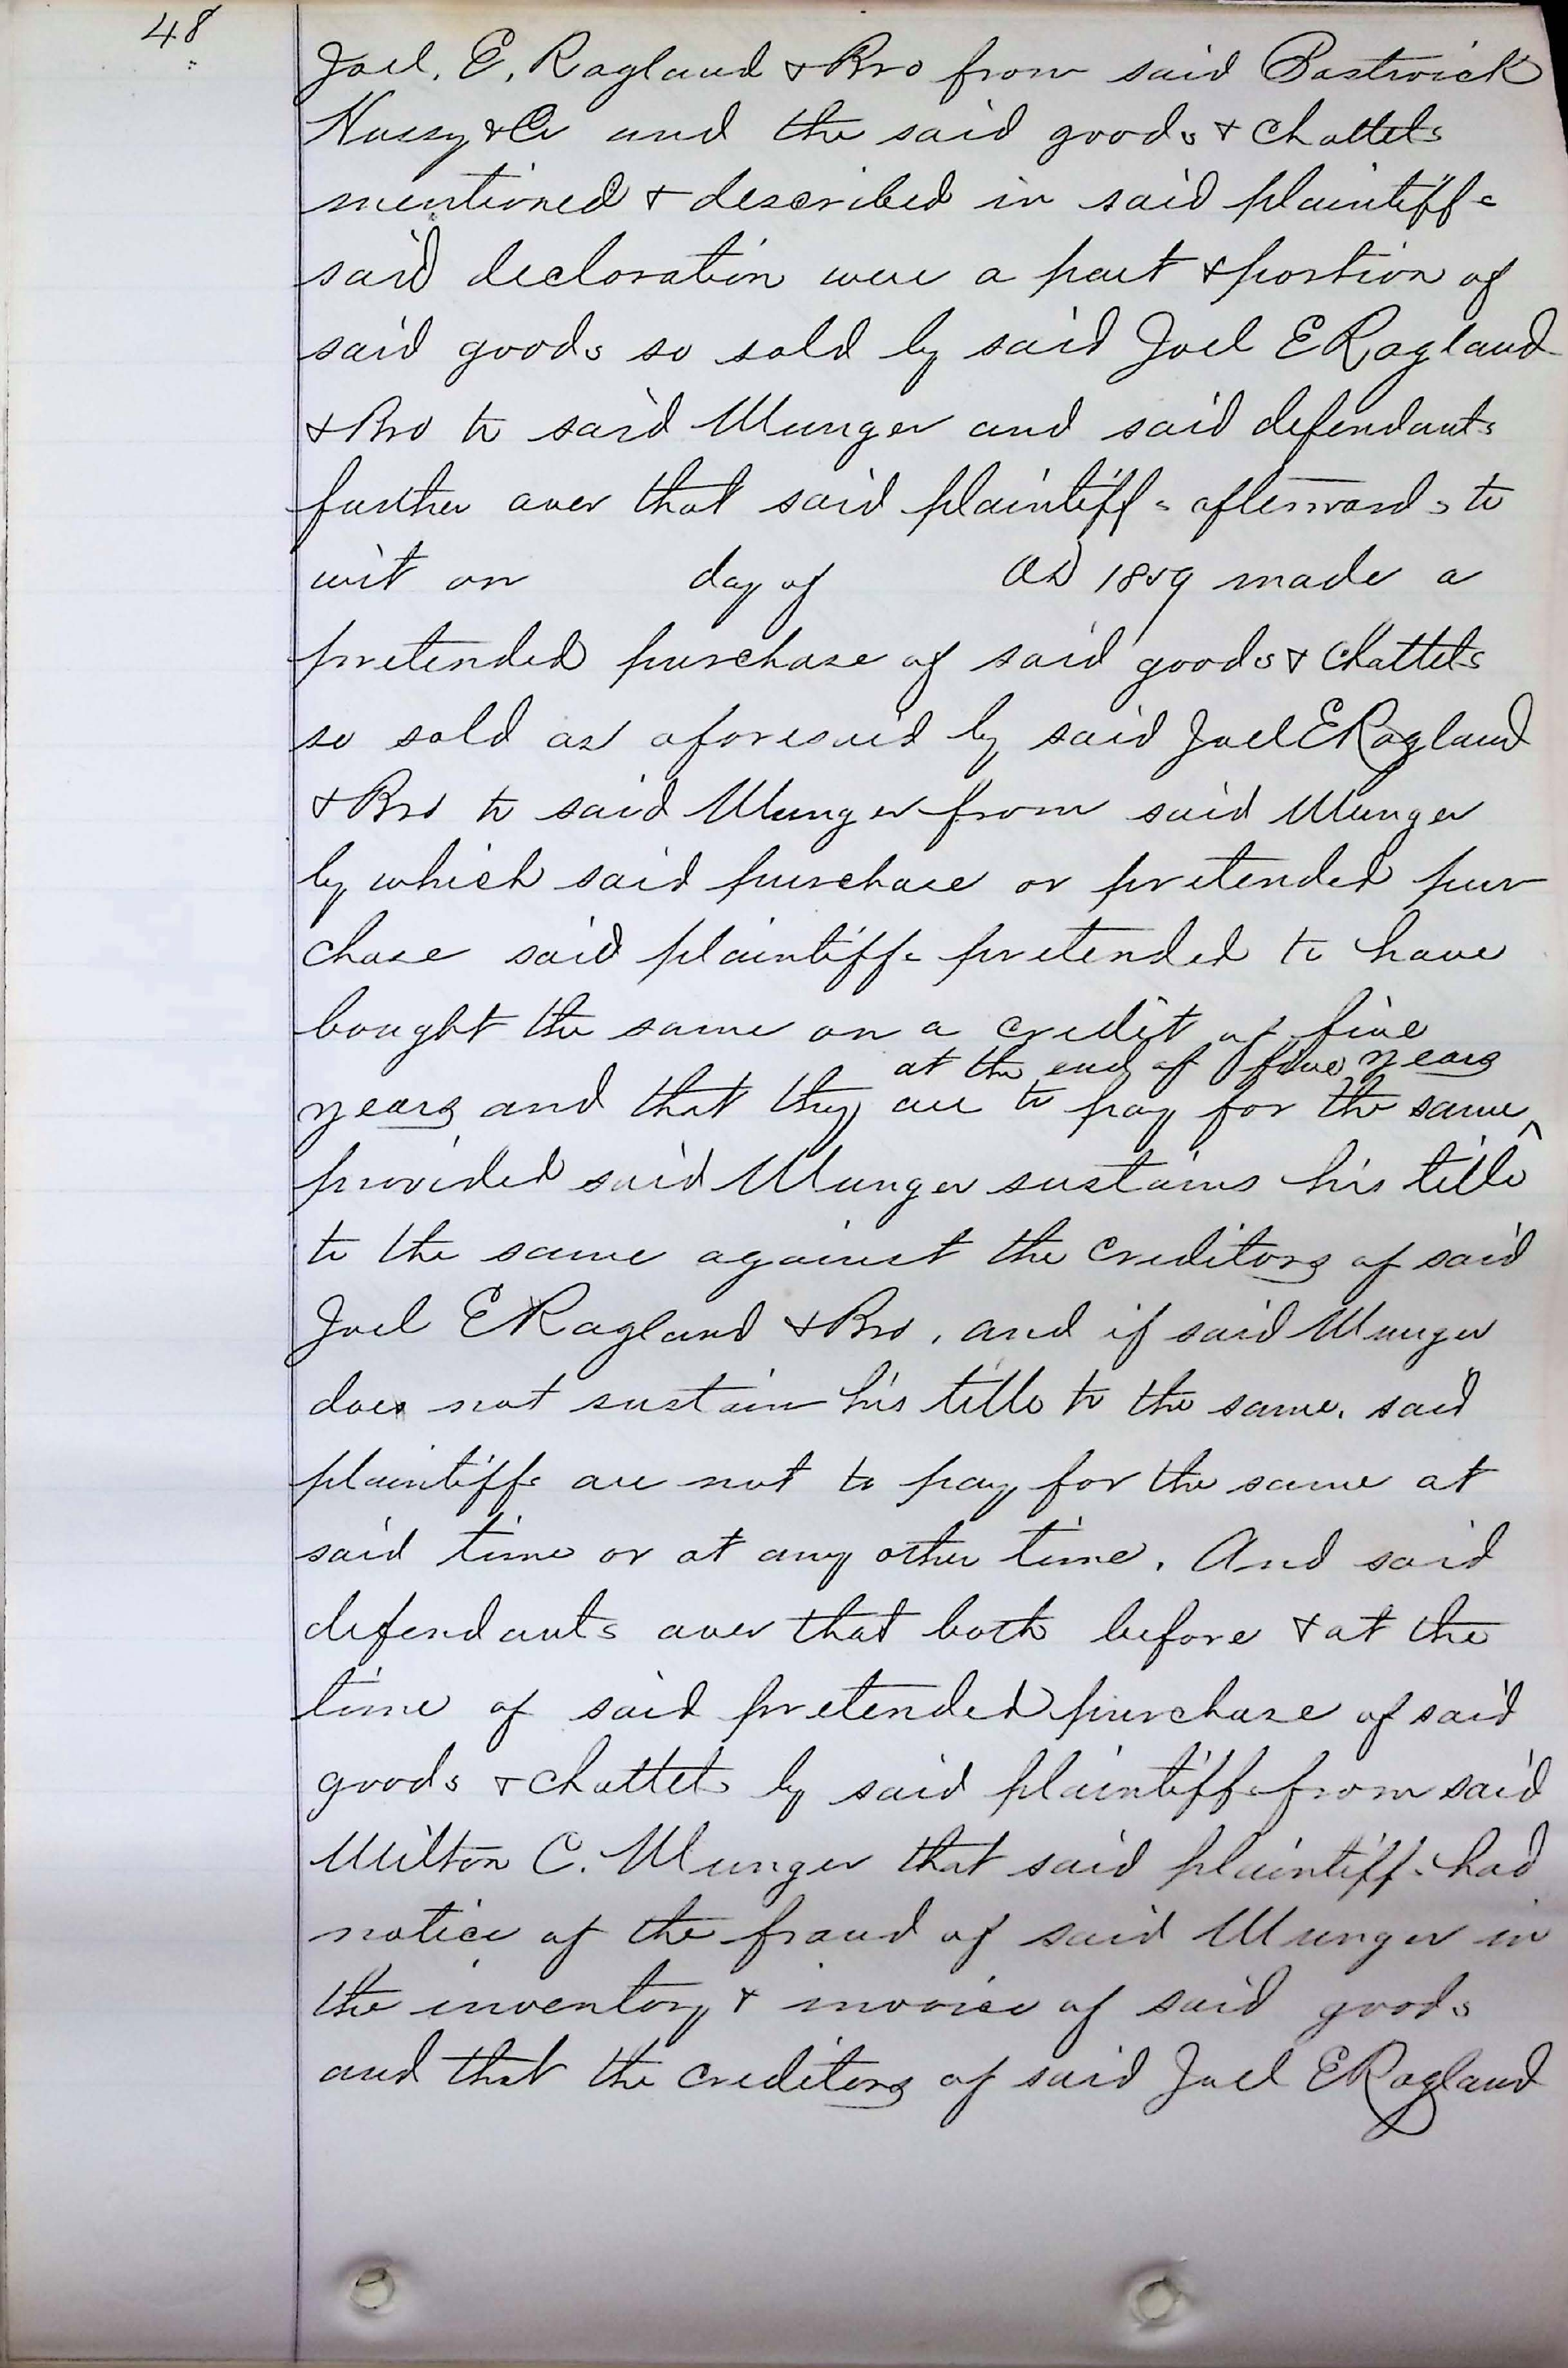 48
Joel. E. Ragland & Bro from said Bostwick
Hussy & Co and the said goods & chattels
mentioned & described in said plaintiffs
said decloration were a part & portion of
said goods so sold by said Joel E Ragland
& Bro to said Munger and said defendants
further aver that said plaintiffs afterwards to
wit on day of AD 1859 made a
pretended purchase of said goods & Chattels
so sold as aforesaid by said Joel E Ragland
& Bro to said Munger from said Munger
by which said purchase or pretended pur
chase said plaintiffs pretended to have
bought the same on a credit of five
at the end of five years
years and that they are to pay for the same ^
provided said Munger sustains his title
to the same against the Creditors of said
Joel E Ragland & Bro, and if said Munger
does not sustain his title to the same. said
plaintiffs are not to pay for the same at
said time or at any other time. And said
defendants aver that both before & at the
time of said pretended purchase of said
goods & chattels by said plaintiffs from said
Milton C. Munger that said plaintiffs had
notice of the fraud of said Munger in
the inventory & invoice of said goods
and that the creditors of said Joel E Ragland